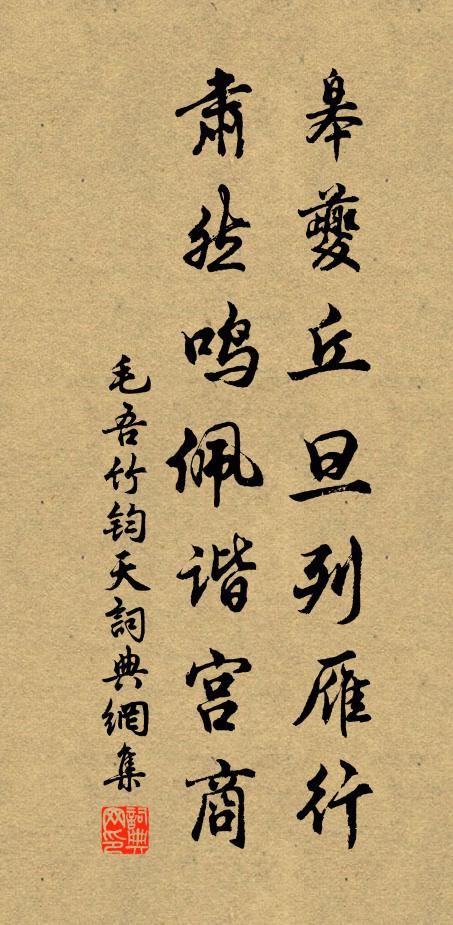 皋夔丘旦列雁行
肃然鸣佩谐宫商
毛吾竹钧天詞典網集
詞典网印